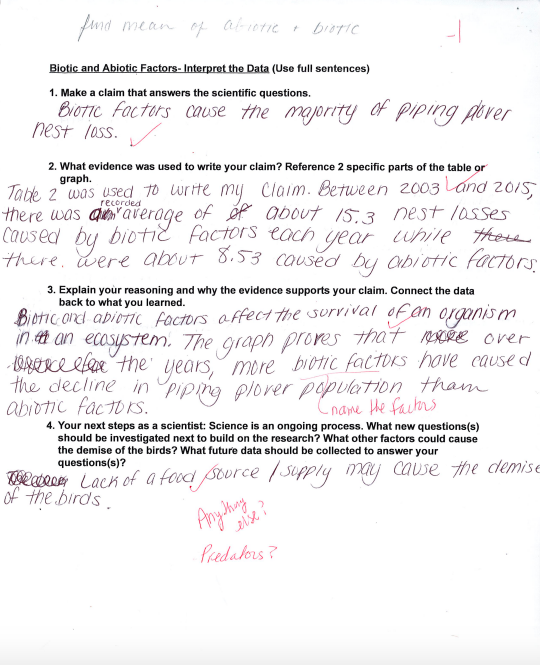 find mean of abiotic + biotic
-1
Biotic and Abiotic Factors- Interpret the Data (Use full sentences)
1. Make a claim that answers the scientific questions.
Biotic factors cause the majority of piping plover
nest loss.
2. What evidence was used to write your claim? Reference 2 specific parts of the table or
graph.
Table 2 was used to write my claim. Between 2003 and 2015,
recorded
there was an average of of about 15.3 nest losses
caused by biotic factors each year while there
there were about 8.53 caused by abiotic factors.
3. Explain your reasoning and why the evidence supports your claim. Connect the data
back to what you learned.
Biotic and abiotic factors affect the survival of an organism
in an ecosystem. The graph proves that over
the years, more biotic factors have caused
the decline in piping plover population than
abiotic factors.
name the factors
4. Your next steps as a scientist: Science is an ongoing process. What new questions(s)
should be investigated next to build on the research? What other factors could cause
the demise of the birds? What future data should be collected to answer your
questions(s)?
Lack of a food source / supply may cause the demise
of the birds.
Anything
else?
Predators?